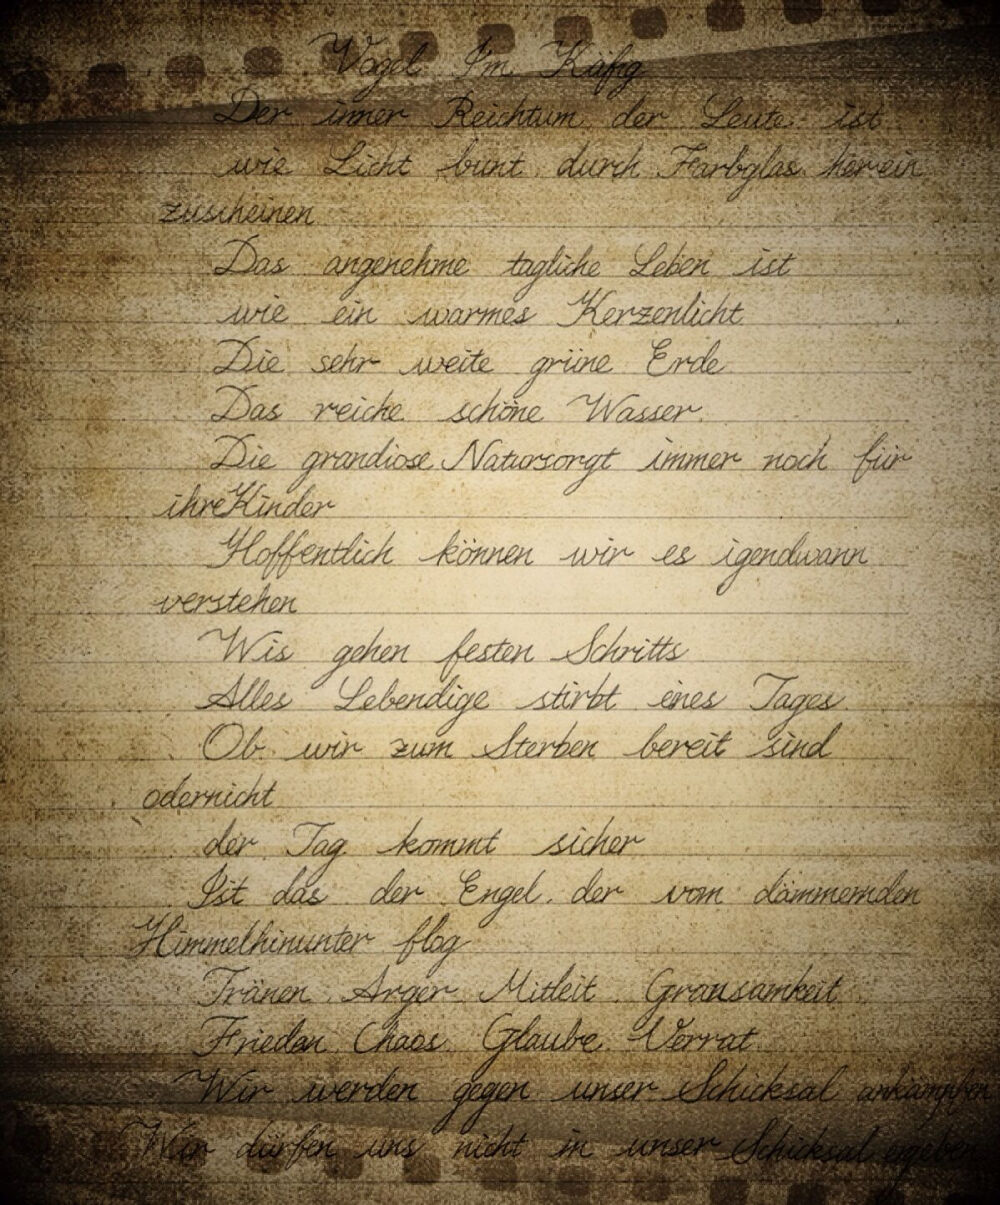 Vogel Im Käfig
Der inner Reichtum der Leute ist
wie Licht bunt durch Farbglas herein
zuscheinen
Das angenehme tagliche Leben ist
wie ein warmes Kerzenlicht
Die sehr weite grüne Erde
Das reiche schöne Wasser
Die grandiose Natursorgt immer noch für
ihreKinder
Hoffentlich können wir es igendwann
verstehen
Wis gehen festen Schritts
Alles Lebendige stirbt eines Tages
Ob wir zum Sterben bereit sind
odernicht
der Tag kommt sicher
Ist das der Engel der vom dämmernden
Himmelhinunter flog
Tränen Arger Mitleit Gransamkeit
Frieden Chaos Glaube Verrat
Wir werden gegen unser Schicksal ankämpfen
Wir dürfen uns nicht in unser Schicksal